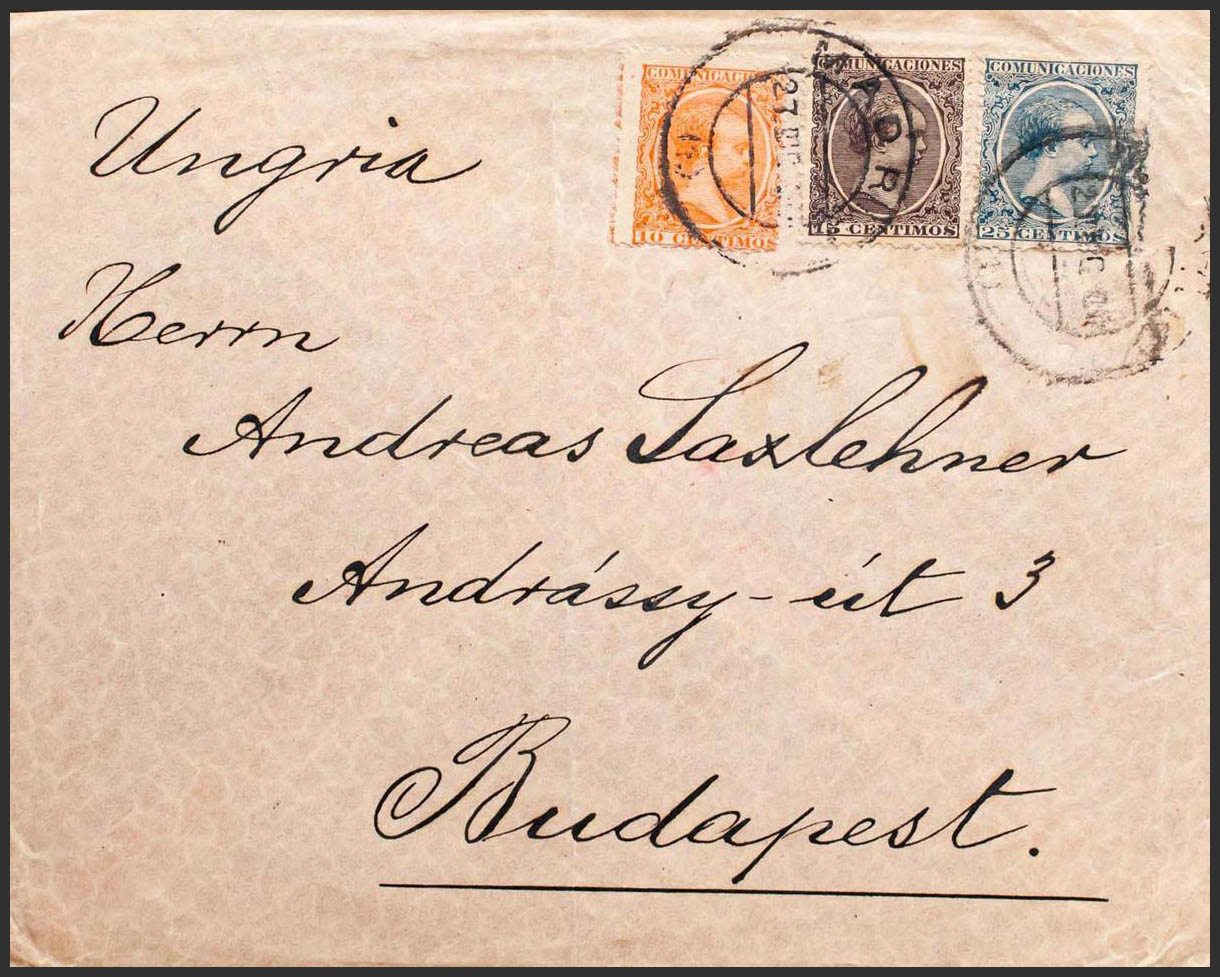 COMUNICACIONES
10 CENTIMOS
COMUNICACIONES
15 CENTIMOS
COMUNICACIONES
25 CENTIMOS
27
Ungria
Herrn
Andreas Saxlehner
Andrássy-út 3
Budapest.